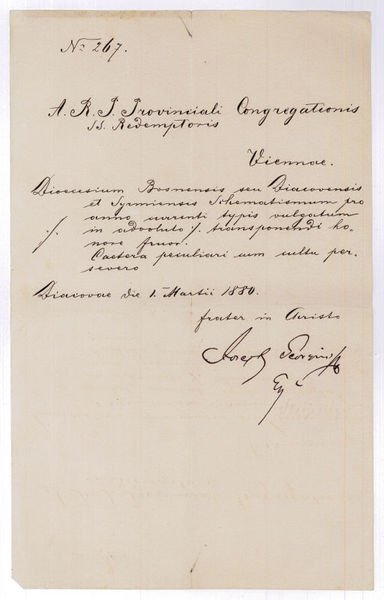 No 267.
A. R. P. Provinciali Congregationis
SS. Redemptoris
Viennae.
Dioecesium Bosnensis seu Diacovensis
et Syrmiensis Schematismum pro
anno currenti typis vulgatum
./. in advoluto ./. transponendi ho-
nore fruor.
Caetera peculiari cum cultu per-
severo
Diacovae die 1. Martii 1880.
frater in Christo
Joseph